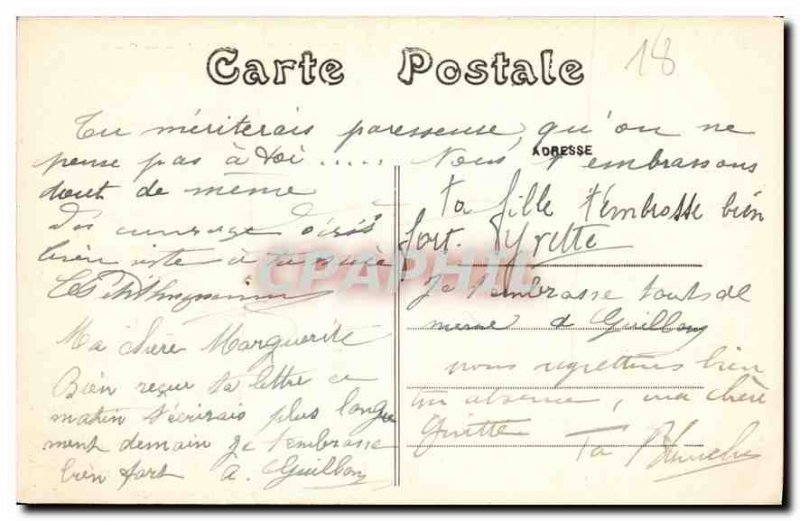 18
Carte Postale
Tu mériterais paresseuse qu'on ne
pense pas à toi ..... Nous t'embrassons
tout de même
ADRESSE
courage
bien à
Ma chère Marguerite
Bien reçu ta lettre ce
matin t'écrirais plus longue
ment demain Je t'embrasse
bien fort A. Guillon
ta fille t'embrasse bien
fort. Yvette
CPAPHIL
Je t'embrasse tout de
meme Guillon
nous regrettons bien
ton absence, ma chère
Guitte Ta Blanche